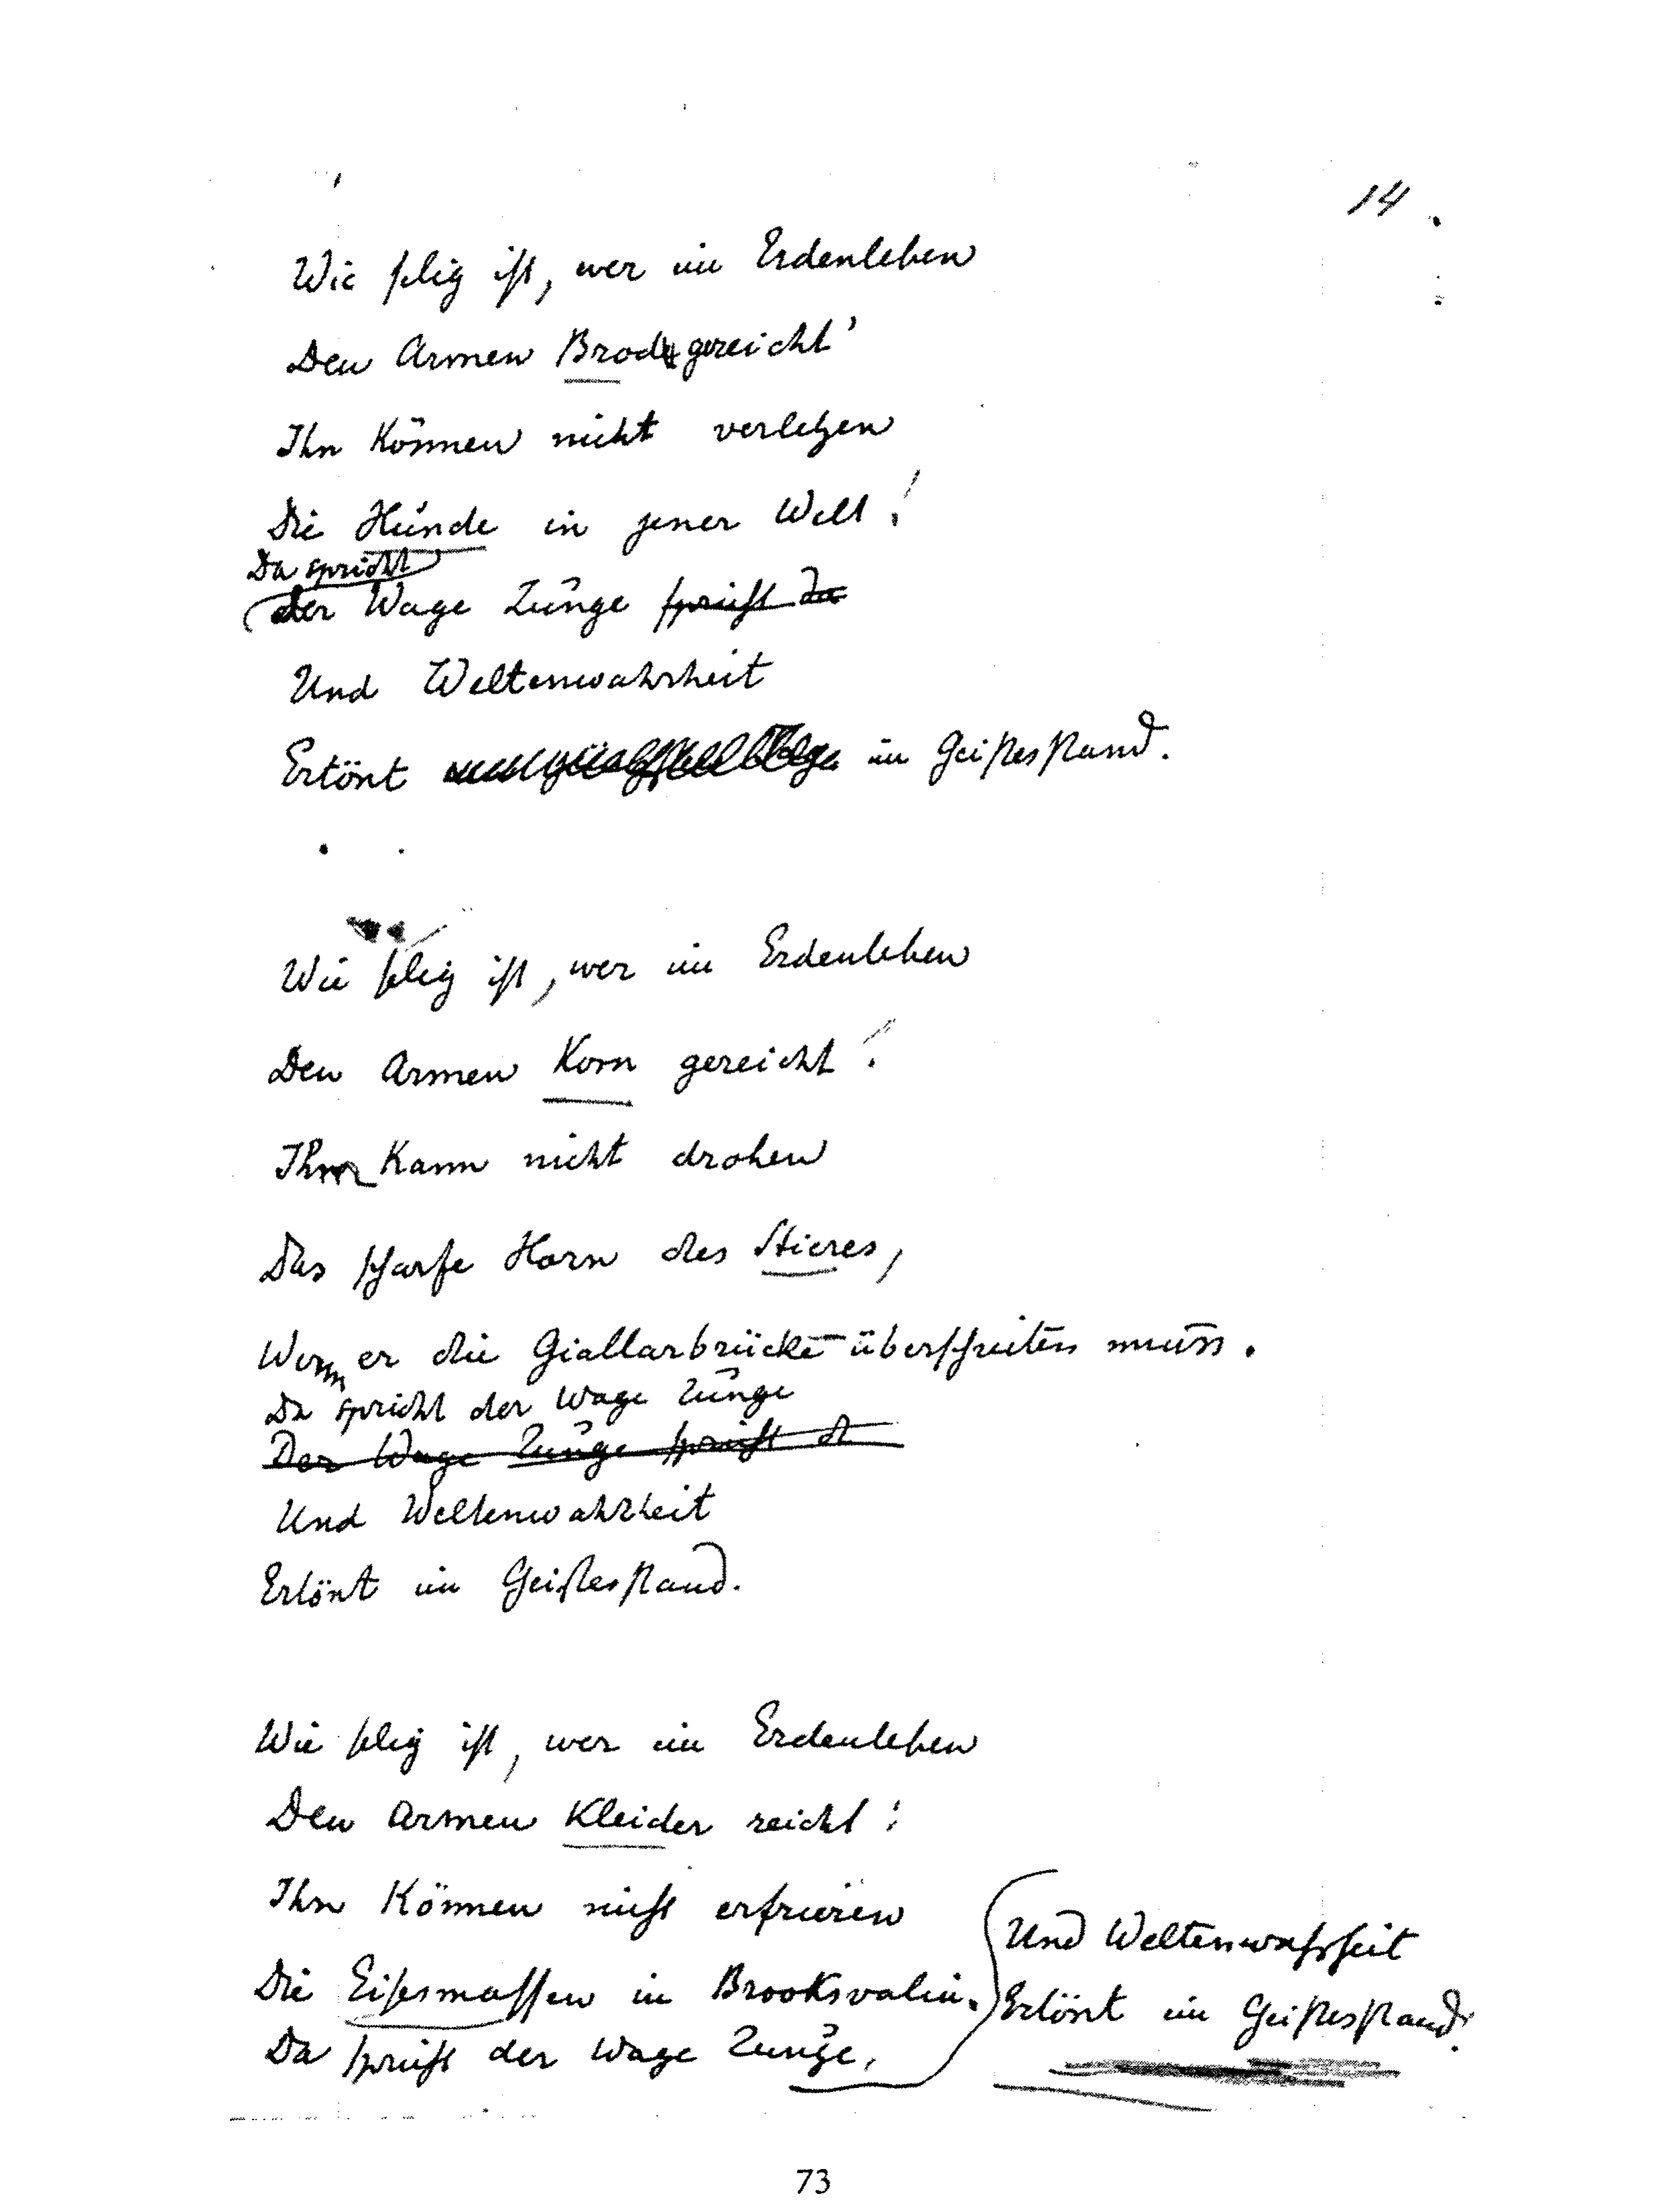 14.
Wie selig ist, wer im Erdenleben
Den Armen Brod gereicht!
Ihn können nicht verletzen
Die Hunde in jener Welt!
Da spricht
der Wage Zunge spricht da
Und Weltenwahrheit
Ertönt im Geistesstand.
Wie selig ist, wer im Erdenleben
Den Armen Korn gereicht!
Ihm kann nicht drohen
Das scharfe Horn des Stieres,
Wenn er die Giallarbrücke überschreiten muss.
Da spricht der Wage Zunge
Der Wage Zunge spricht d
Und Weltenwahrheit
Ertönt im Geistesstand.
Wie selig ist, wer im Erdenleben
Den Armen Kleider reicht!
Ihn können nicht erfrieren
Die Eisesmassen in Brooksvalin.
Da spricht der Wage Zunge,
Und Weltenwahrheit
Ertönt im Geistesstand.
73